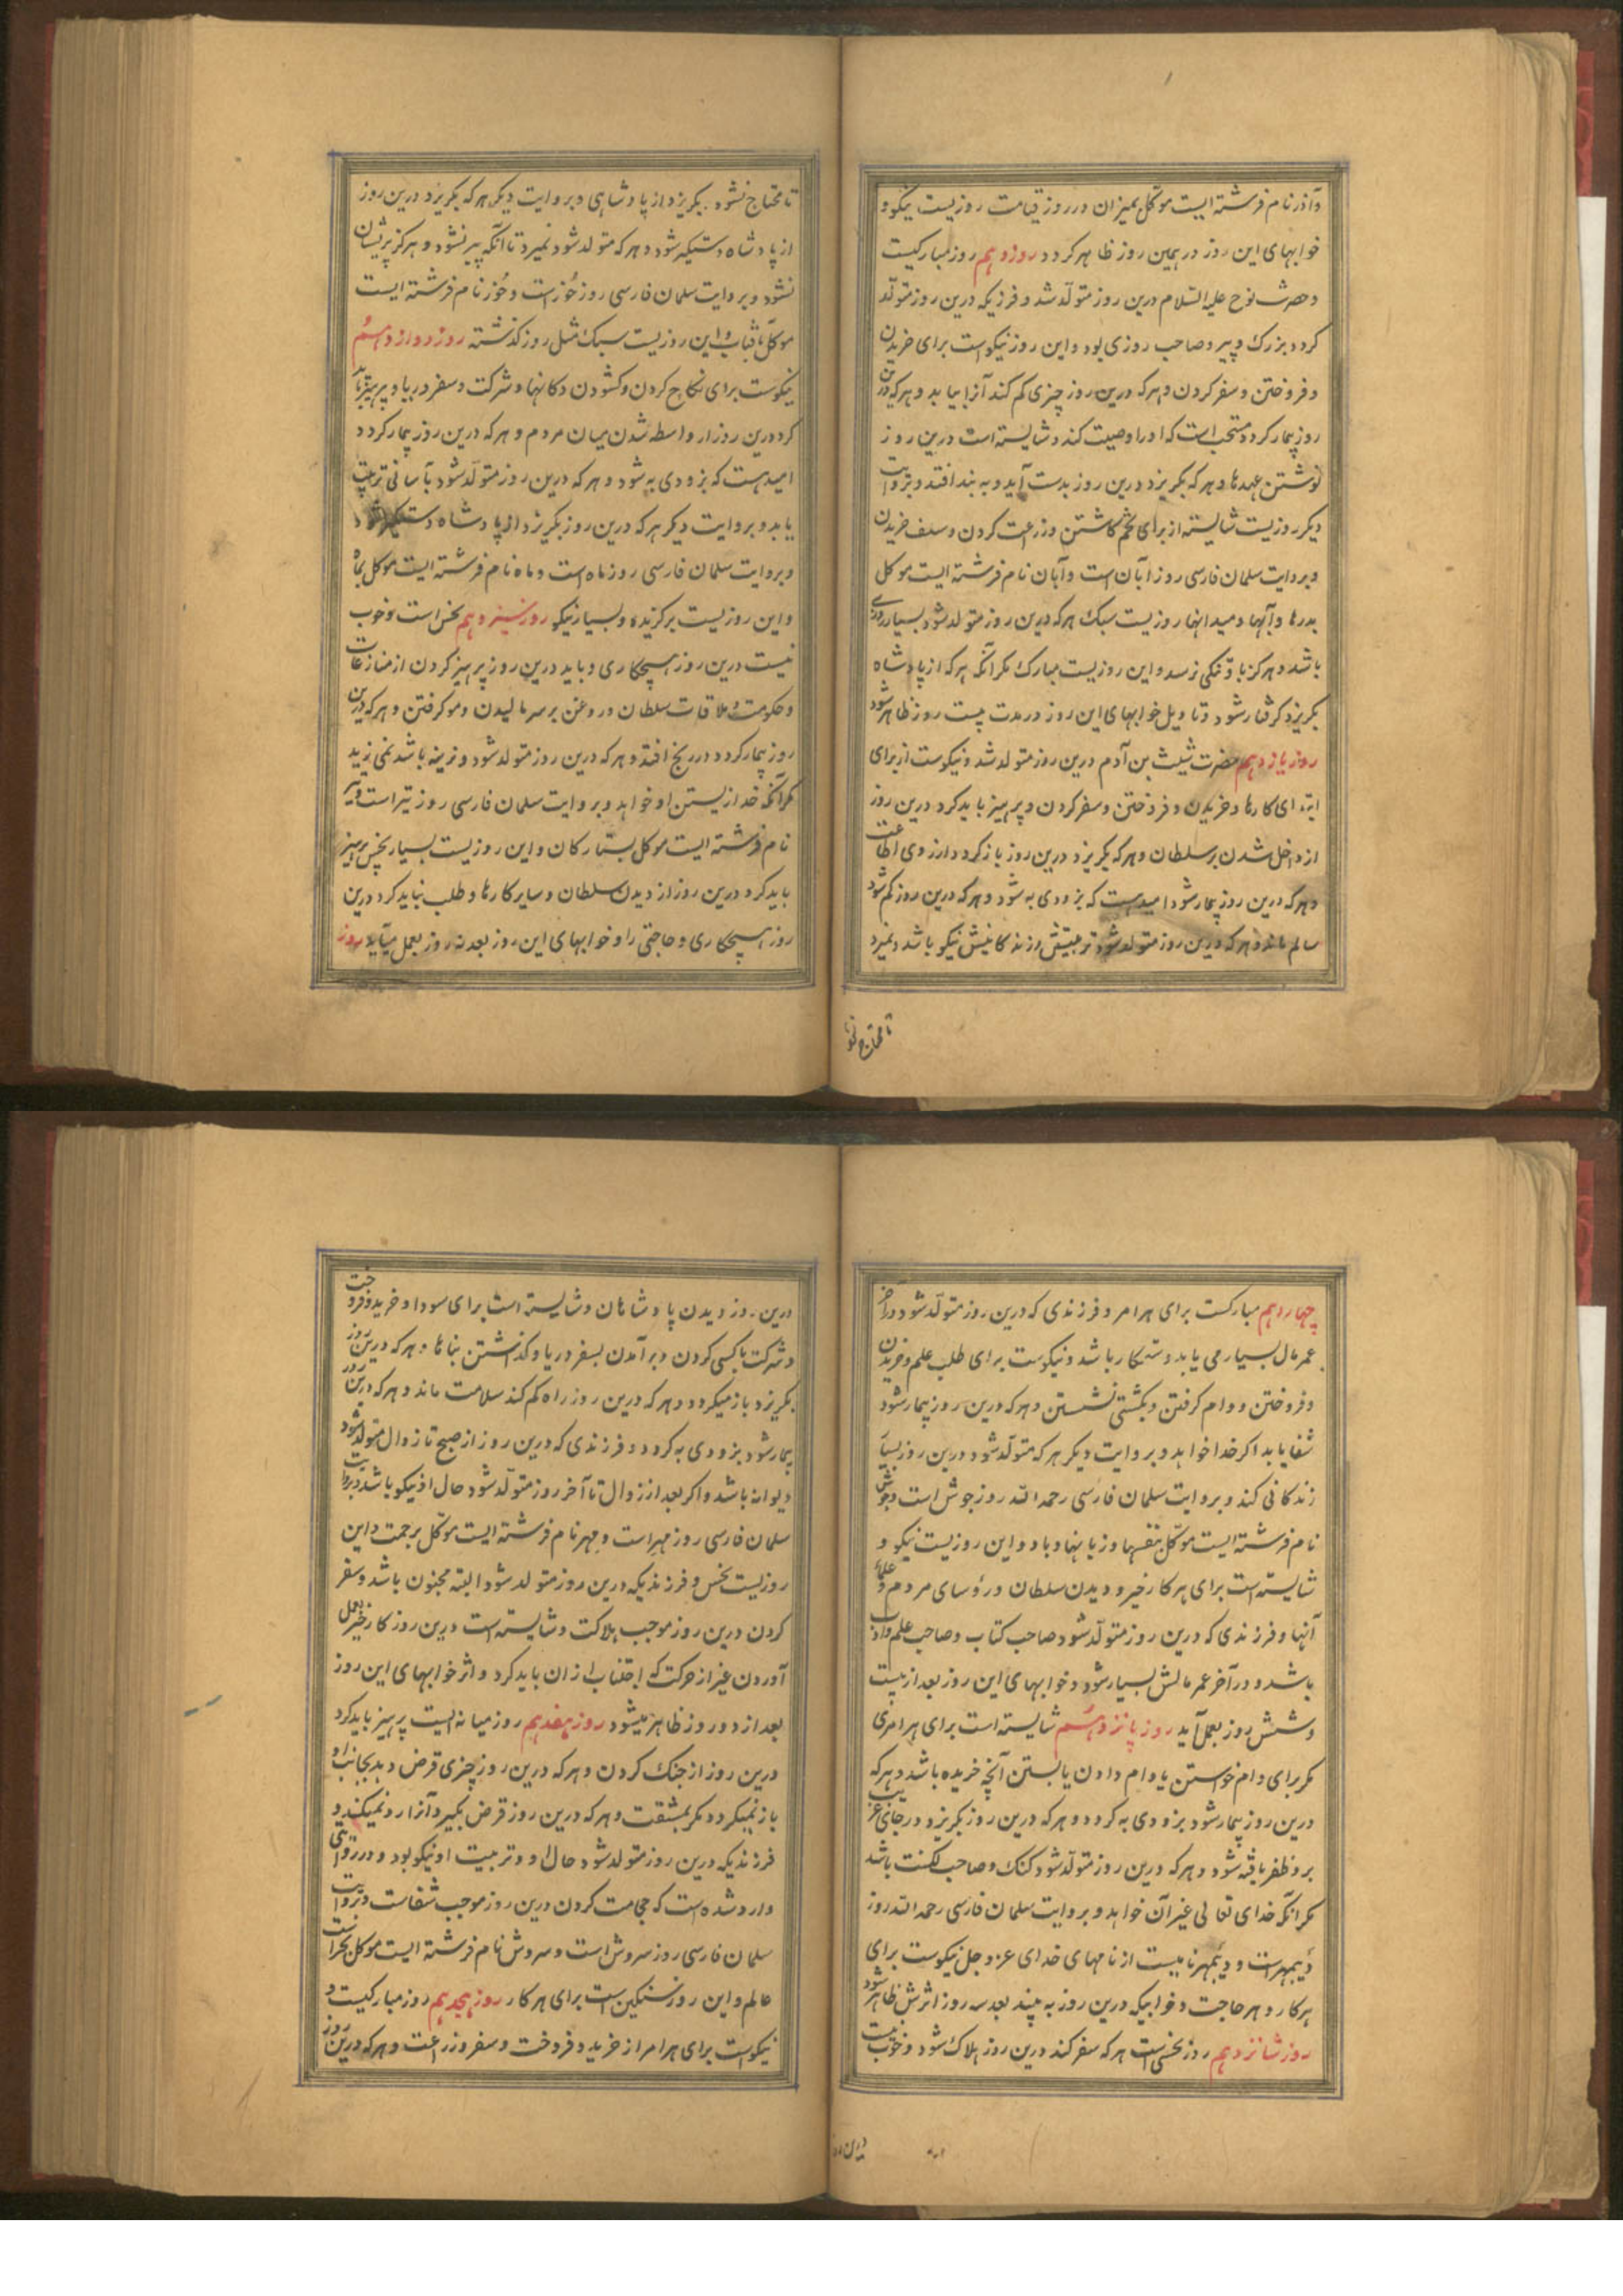 و آذر نام فرشته ایست موکل بمیزان در روز قیامت روزیست نیکو و
خوابهای این روز در همین روز ظاهر کردد روز دهم روز مبارکیست
و حضرت نوح علیه السلام درین روز متولد شد و فرزیکه درین روز متولد
کردد بزرک و پیر و صاحب روزی بود و این روز نیکوست برای خریدن
و فروختن و سفر کردن و هر که درین روز چیزی کم کند آنرا بیابد و هر که درین
روز بیمار کردد مستحب است که او را وصیت کند و شایسته است درین روز
نوشتن عهدها و هر که بکریزد درین روز بدست آید و به بند افتد و بروایت
دیکر روزیست شایسته از برای تخم کاشتن و زرعت کردن و سلف خریدن
و بروایت سلمان فارسی روز آبان است و آبان نام فرشته ایست موکل
بدرها و آبها و میدانها روزیست سبک هر که درین روز متولد شود بسیار روزی
باشد و هرکز باو تنکی نرسد و این روزیست مبارک مکر آنکه هر که از پادشاه
بکریزد کرفتار شود و تاویل خوابهای این روز در مدت بیست روز ظاهر شود
روز یازدهم حضرت شیث بن آدم درین روز متولد شد و نیکوست از برای
ابتدای کارها و خریدن و فروختن و سفر کردن و پرهیز باید کرد درین روز
از داخل شدن بر سلطان و هر که بکریزد درین روز باز کردد از روی اطاعت
و هر که درین روز بیمار شود امید است که بزودی به شود و هر که درین روز کم شود
سالم ماند و هر که درین روز متولد شود تربیتش و زندکانیش نیکو باشد و نمیرد
تا محتاج نشود
تا محتاج نشود بکریزد از پادشاهی و بروایت دیکر هر که بکریزد درین روز
از پادشاه دستکیر شود و هر که متولد شود نمیرد تا آنکه پیر نشود و هرکز پریشان
نشود و بروایت سلمان فارسی روز خُوز است و خُوز نام فرشته ایست
موکل بآفتاب و این روزیست سبک مثل روز کذشته روز دوازدهم
نیکوست برای نکاح کردن و کشودن دکانها و شرکت و سفر دریا و پرهیز باید
کرد درین روز از واسطه شدن میان مردم و هر که درین روز بیمار کردد
امید هست که بزودی به شود و هر که درین روز متولد شود بآسانی تربیت
یابد و بروایت دیکر هر که درین روز بکریزد از پادشاه دستکیر شود
و بروایت سلمان فارسی روز ماه است و ماه نام فرشته ایست موکل بماه
و این روزیست برکزیده و بسیار نیکو روز سیزدهم نحس است و خوب
نیست درین روز هیچکاری و باید درین روز پرهیز کردن از منازعات
و حکومت و ملاقات سلطان و روغن بر سر مالیدن و مو کرفتن و هر که درین
روز بیمار کردد در رنج افتد و هر که درین روز متولد شود و نرینه باشد نمی زید
مکر آنکه خدا زیستن او خواهد و بروایت سلمان فارسی روز تیر است و تیر
نام فرشته ایست موکل بستارکان و این روزیست بسیار نحس پرهیز
باید کرد درین روز از دیدن سلطان و سایر کارها و طلب نباید کرد درین
روز هیچکاری و حاجتی را و خوابهای این روز بعد نه روز بعمل میآید روز
چهاردهم مبارکست برای هر امر و فرزندی که درین روز متولد شود در آخر
عمر مال بسیار می یابد و ستمکار باشد و نیکوست برای طلب علم و خریدن
و فروختن و وام کرفتن و بکشتی نشستن و هر که درین روز بیمار شود
شفا یابد اکر خدا خواهد و بروایت دیکر هر که متولد شود درین روز بسیار
زندکانی کند و بروایت سلمان فارسی رحمه الله روز جوش است و جوش
نام فرشته ایست موکل بنفسها و زبانها و باد و این روزیست نیکو و
شایسته است برای هر کار خیر و دیدن سلطان و رؤسای مردم و علمای
آنها و فرزندی که درین روز متولد شود صاحب کتاب و صاحب علم و ادب
باشد و در آخر عمر مالش بسیار شود و خوابهای این روز بعد از بیست
و شش روز بعمل آید روز پانزدهم شایسته است برای هر امری
مکر برای وام خواستن یا وام دادن یا بستن آنچه خریده باشد و هر که
درین روز بیمار شود بزودی به کردد و هر که درین روز بکریزد در جای غریب
برو ظفر یافته شود و هر که درین روز متولد شود کنک و صاحب لکنت باشد
مکر آنکه خدای تعالی غیر آن خواهد و بروایت سلمان فارسی رحمه الله روز
دیبمهر است و دیبمهر نامیست از نامهای خدای عز و جل نیکوست برای
هر کار و هر حاجت و خوابیکه درین روز به بیند بعد سه روز اثرش ظاهر شود
روز شانزدهم روز نحسی است هر که سفر کند درین روز هلاک شود و خوب نیست
درین روز
درین روز دیدن پادشاهان و شایسته است برای سودا و خرید و فروخت
و شرکت با کسی کردن و برآمدن بسفر دریا و کذاشتن بناها و هر که درین روز
بکریزد باز میکردد و هر که درین روز راه کم کند سلامت ماند و هر که درین روز
بیمار شود بزودی به کردد و فرزندی که درین روز از صبح تا زوال متولد شود
دیوانه باشد و اکر بعد از زوال تا آخر روز متولد شود حال او نیکو باشد و بروایت
سلمان فارسی روز مهر است و مهر نام فرشته ایست موکل برحمت و این
روزیست نحس و فرزندیکه درین روز متولد شود البته مجنون باشد و سفر
کردن درین روز موجب هلاکت و شایسته است درین روز کار خیر بعمل
آوردن غیر از حرکت که اجتناب از آن باید کرد و اثر خوابهای این روز
بعد از دو روز ظاهر میشود روز هفدهم روز میانه ایست پرهیز باید کرد
درین روز از جنک کردن و هر که درین روز چیزی قرض دهد بجانب او
باز نمیکردد مکر بمشقت و هر که درین روز قرض بکیرد آنرا رد نمیکند و
فرزندیکه درین روز متولد شود حال او و تربیت او نیکو بود و در روایتی
وارد شده است که حجامت کردن درین روز موجب شفاست و بروایت
سلمان فارسی روز سروش است و سروش نام فرشته ایست موکل بحراست
عالم و این روز سنکین است برای هر کار روز هیجدهم روز مبارکیست و
نیکوست برای هر امر از خرید و فروخت و سفر و زرعت و هر که درین روز